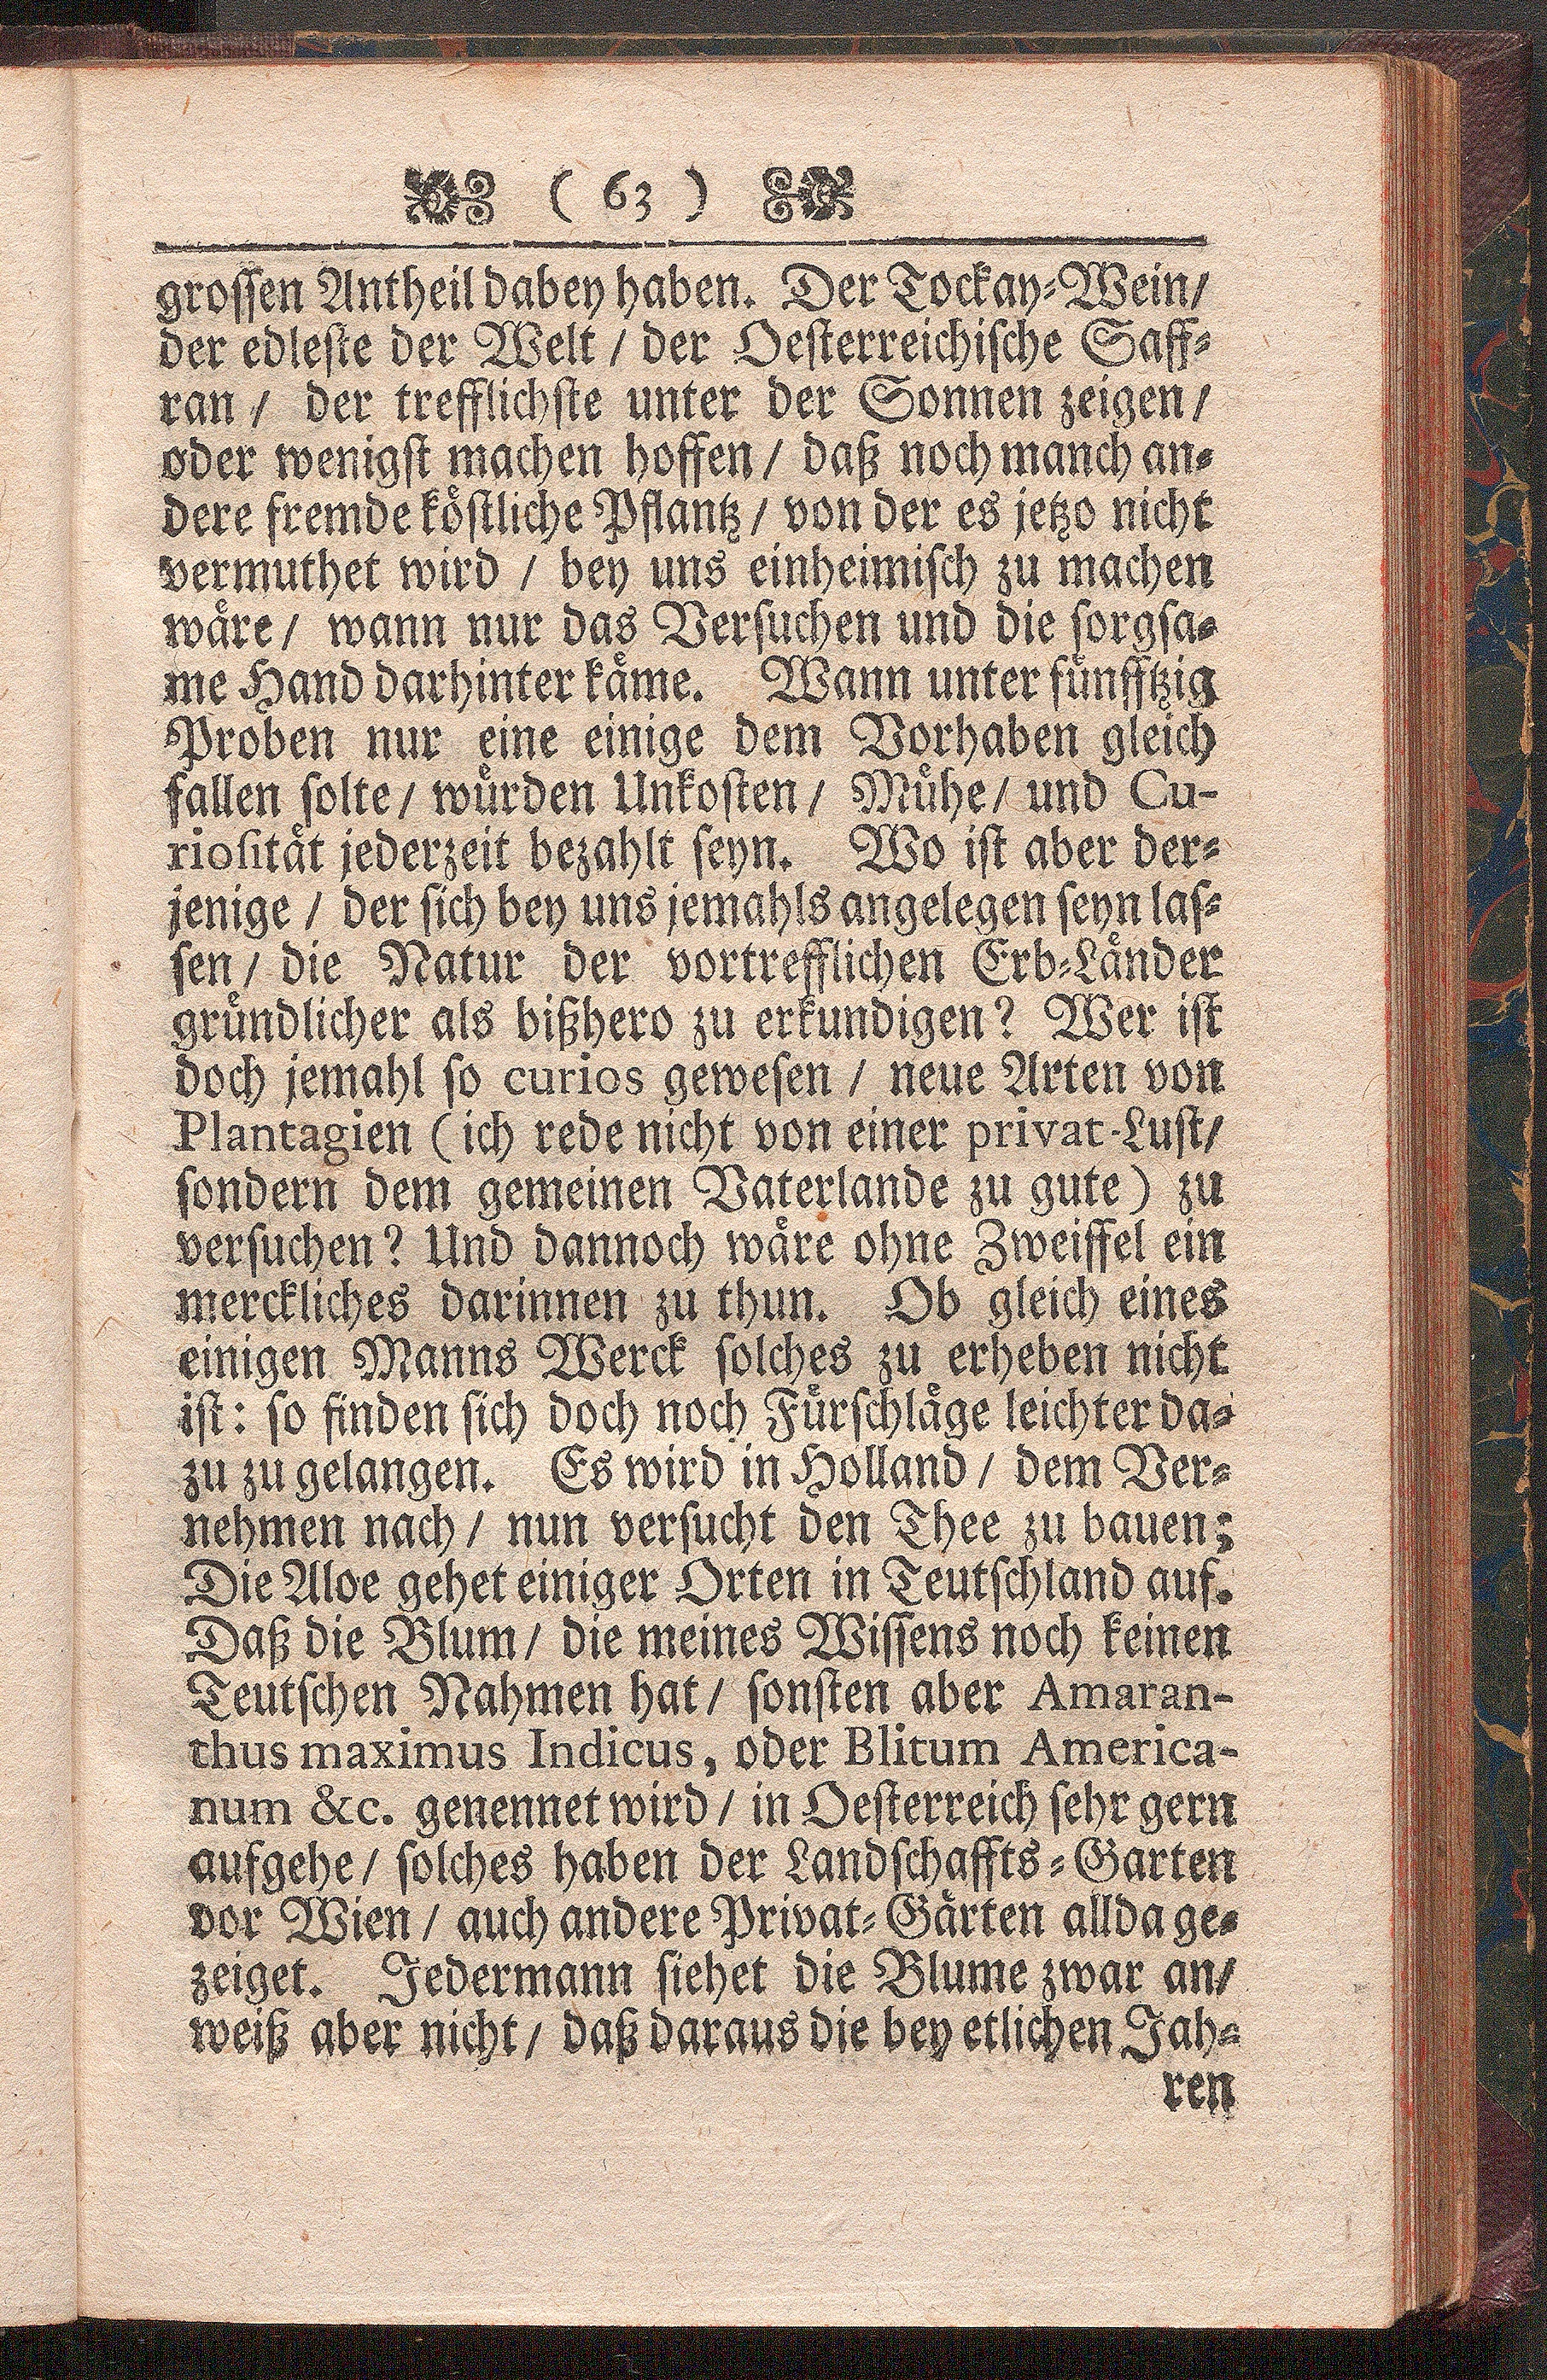 ( 63 )
grossen Antheil dabey haben. Der Tockay-Wein/
der edleste der Welt / der Oesterreichische Saff-
ran / der trefflichste unter der Sonnen zeigen /
oder wenigst machen hoffen / daß noch manch an-
dere fremde köstliche Pflantz / von der es jetzo nicht
vermuthet wird / bey uns einheimisch zu machen
wäre / wann nur das Versuchen und die sorgsa-
me Hand darhinter käme. Wann unter fünfftzig
Proben nur eine einige dem Vorhaben gleich
fallen solte / würden Unkosten / Mühe / und Cu-
riosität jederzeit bezahlt seyn. Wo ist aber der-
jenige / der sich bey uns jemahls angelegen seyn las-
sen / die Natur der vortrefflichen Erb-Länder
gründlicher als bißhero zu erkundigen? Wer ist
doch jemahl so curios gewesen / neue Arten von
Plantagien (ich rede nicht von einer privat-Lust/
sondern dem gemeinen Vaterlande zu gute) zu
versuchen? Und dannoch wäre ohne Zweiffel ein
merckliches darinnen zu thun. Ob gleich eines
einigen Manns Werck solches zu erheben nicht
ist: so finden sich doch noch Fürschläge leichter da-
zu zu gelangen. Es wird in Holland / dem Ver-
nehmen nach / nun versucht den Thee zu bauen;
Die Aloe gehet einiger Orten in Teutschland auf.
Daß die Blum / die meines Wissens noch keinen
Teutschen Nahmen hat / sonsten aber Amaran-
thus maximus Indicus, oder Blitum America-
num &c. genennet wird / in Oesterreich sehr gern
aufgehe / solches haben der Landschaffts-Garten
vor Wien / auch andere Privat-Gärten allda ge-
zeiget. Jedermann siehet die Blume zwar an/
weiß aber nicht / daß daraus die bey etlichen Jah-
ren